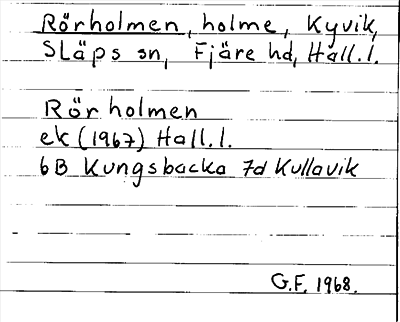 Rörholmen, holme, Kyvik,
Släps sn, Fjäre hd, Hall. l.
Rörholmen
ek (1967) Hall. l.
6B Kungsbacka 7d Kullavik
G.F. 1968.